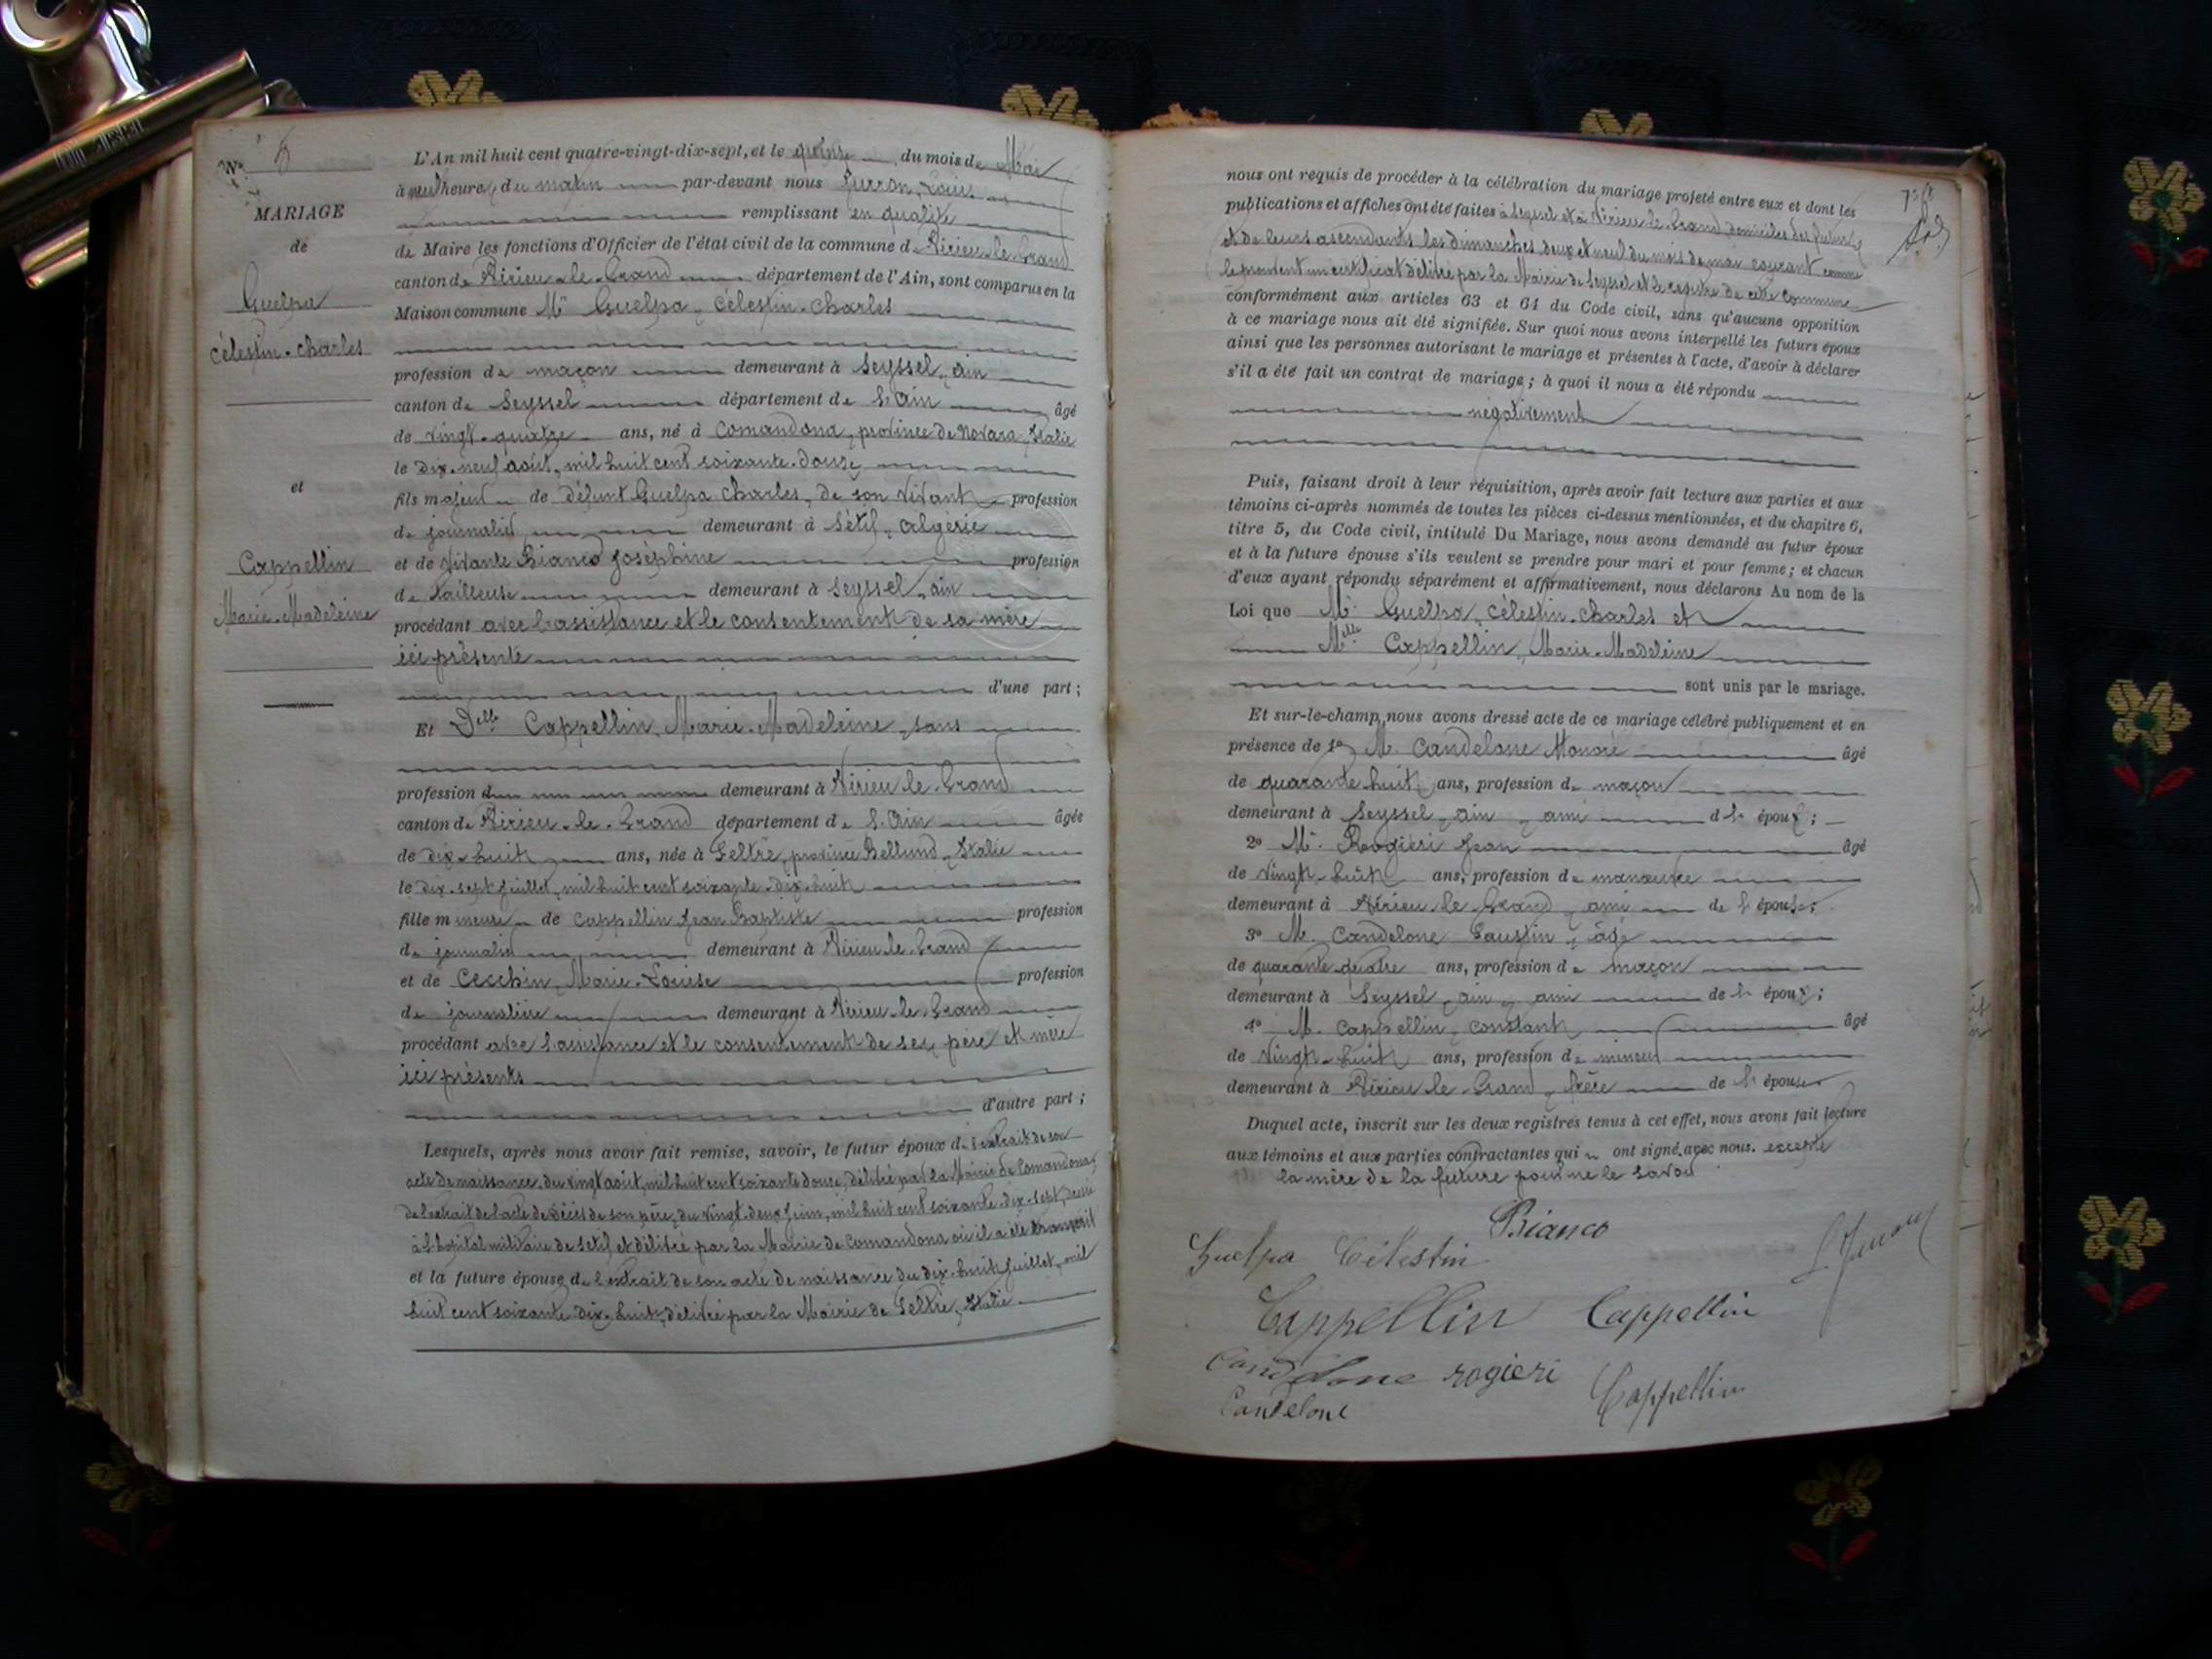 N° 5
MARIAGE
de
Guelpa
Célestin-Charles
et
Cappellin
Marie-Madeleine
L'An mil huit cent quatre-vingt-dix-sept, et le quinze du mois de Mai
à neuf heures du matin par-devant nous Louis
remplissant en qualité
de Maire les fonctions d'Officier de l'état civil de la commune de Virieu-le-Grand
canton de Virieu-le-Grand département de l'Ain, sont comparus en la
Maison commune Mr Guelpa, Célestin-Charles
profession de maçon demeurant à Seyssel, ain
canton de Seyssel département de l'Ain âgé
de vingt-quatre ans, né à Comandona, province de Novara, Italie
le dix-neuf août, mil huit cent soixante-douze
fils majeur de défunt Guelpa Charles, de son vivant profession
de journalier demeurant à Sétif, Algérie
et de vivante Bianco Joséphine profession
de tailleuse demeurant à Seyssel, ain
procédant avec l'assistance et le consentement de sa mère
ici présente
d'une part ;
Et Delle Cappellin, Marie-Madeleine, sans
profession demeurant à Virieu-le-Grand
canton de Virieu-le-Grand département de l'Ain âgée
de dix-huit ans, née à Feltre, province Bellund, Italie
le dix-sept juillet, mil huit cent soixante-dix-huit
fille mineure de Cappellin Jean Baptiste profession
de journalier demeurant à Virieu-le-Grand
et de Cecchin, Marie-Louise profession
de journalière demeurant à Virieu-le-Grand
procédant avec l'assistance et le consentement de ses père et mère
ici présents
d'autre part ;
Lesquels, après nous avoir fait remise, savoir, le futur époux de l'extrait de son
acte de naissance du vingt août, mil huit cent soixante douze, délivré par la Mairie de Comandona,
de l'extrait de l'acte de décès de son père, du vingt-deux juin, mil huit cent soixante-dix-sept,
à l'hopital militaire de Sétif, et délivré par la Mairie de Comandona où il a été transcrit
et la future épouse de l'extrait de son acte de naissance du dix-huit juillet, mil
huit cent soixante-dix-huit, délivré par la Mairie de Feltre, Italie
nous ont requis de procéder à la célébration du mariage projeté entre eux et dont les
publications et affiches ont été faites à Seyssel et à Virieu-le-Grand, domiciles des futurs
et de leurs ascendants, les dimanches deux et neuf du mois de mai courant comme
le prouvent un certificat délivré par la Mairie de Seyssel et le registre de cette Commune
conformément aux articles 63 et 64 du Code civil, sans qu'aucune opposition
à ce mariage nous ait été signifiée. Sur quoi nous avons interpellé les futurs époux
ainsi que les personnes autorisant le mariage et présentes à l'acte, d'avoir à déclarer
s'il a été fait un contrat de mariage ; à quoi il nous a été répondu
négativement
Puis, faisant droit à leur réquisition, après avoir fait lecture aux parties et aux
témoins ci-après nommés de toutes les pièces ci-dessus mentionnées, et du chapitre 6,
titre 5, du Code civil, intitulé Du Mariage, nous avons demandé au futur époux
et à la future épouse s'ils veulent se prendre pour mari et pour femme ; et chacun
d'eux ayant répondu séparément et affirmativement, nous déclarons Au nom de la
Loi que Mr Guelpa, Célestin-Charles et
Melle Cappellin, Marie-Madeleine
sont unis par le mariage.
Et sur-le-champ, nous avons dressé acte de ce mariage célébré publiquement et en
présence de 1° M. Candelone Honoré âgé
de quarante-huit ans, profession de maçon
demeurant à Seyssel, ain, ami de l'époux ;
2° Mr Rogieri Jean âgé
de vingt-huit ans, profession de manœuvre
demeurant à Virieu-le-Grand, ami de l'épouse ;
3° M. Candelone Faustin, âgé
de quarante-quatre ans, profession de maçon
demeurant à Seyssel, ain, ami de l'époux ;
4° M. Cappellin, Constant âgé
de vingt-huit ans, profession de mineur
demeurant à Virieu-le-Grand, frère de l'épouse
Duquel acte, inscrit sur les deux registres tenus à cet effet, nous avons fait lecture
aux témoins et aux parties contractantes qui ont signé avec nous. excepté
la mère de la future pour ne le savoir
Bianco
Guelpa Célestin
Cappellin Cappellin
Candelone rogieri Cappellin
Candelone